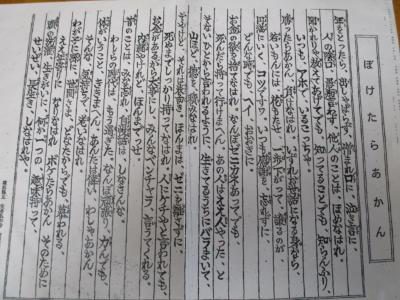 ぼけたらあかん
年をとったら、出しゃばらず、憎まれ口に、泣き言に、
人の陰口、愚痴言わず、他人のことは、ほめなはれ。
聞かれりゃ教えてあげても、知ってることでも、知らんふり、
いつも、アホで、いるこっちゃ。
勝ったらあかん、負けなはれ、いずれお世話になる身なら、
若いもんには、花もたせ、一歩下がって、譲るのが
円満にいく、コツですわ、いつも感謝を、忘れずに、
どんな時でも、ヘイ、おおきに。
お金の欲を、捨てなはれ、なんぼゼニカネ、あっても、
死んだら持って行けまへん、あの人はええ人やった、と
そないひとから、言われるように、生きてるうちにバラまいて、
山ほど、徳を、積みなはれ
そやけど、それは表向き。ほんまは、ゼニを離さずに、
死ぬまでしっかり、持ってなはれ、人にケチやと言われても、
お金があるから、大事にし、みんなベンチャラ、言うてくれる。
内緒やけれど、ほんまでっせ。
昔のことは、みな忘れ、自慢話は、しなさんな、
わしらの時代は、もう過ぎた、なんぼ頑張り、力んでも、
体がいうこと、ききまへん、あんたは偉い、わしゃあかん、
そんな、気持ちで、老いなはれ。
わが子に孫に、世間さま、どなたからでも、慕われる、
ええ年寄りに、なりなはれ、ボケたらあかん、そのために
頭の洗濯、生きがいに、何か一つの、趣味持って、
せいぜい、長生き、しなはれや。